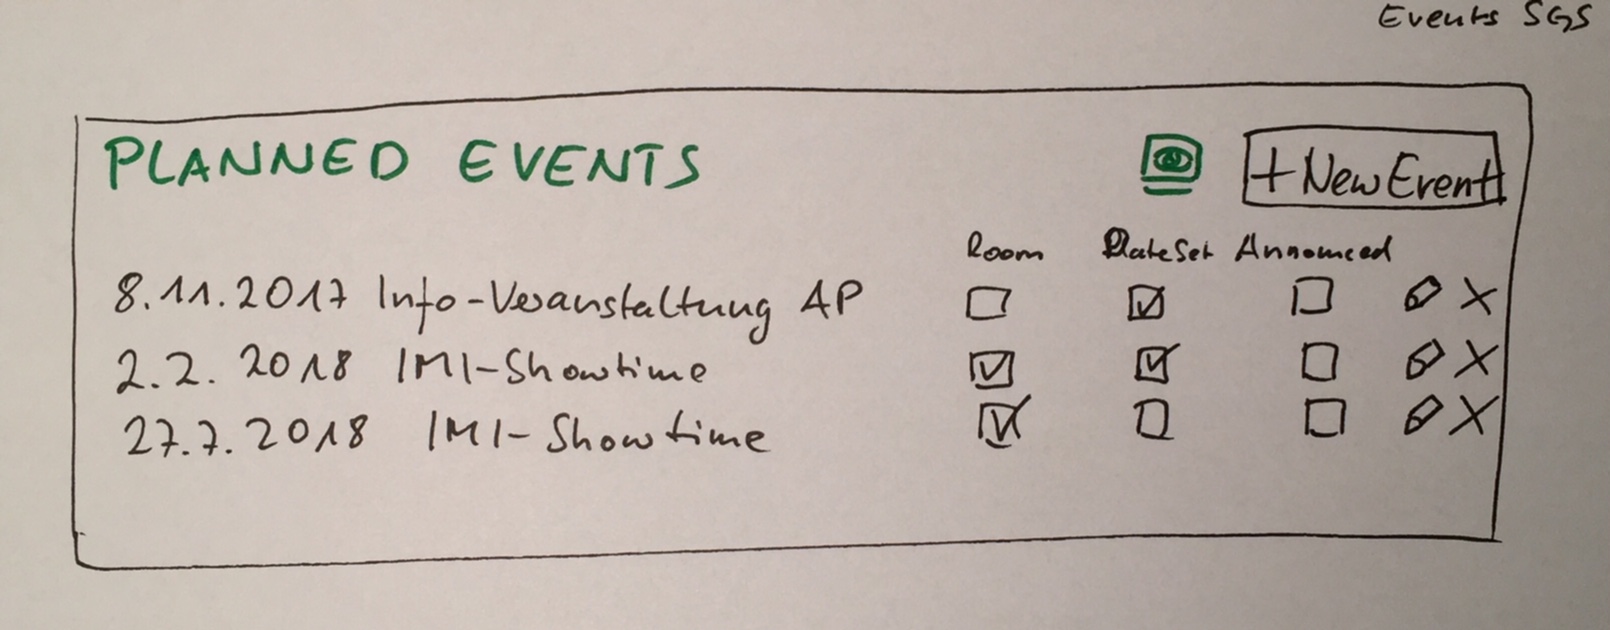 Events SGS
PLANNED EVENTS
+ New Event
Room Date Set Announced
8.11.2017 Info-Veranstaltung AP
2.2.2018 IMI-Showtime
27.7.2018 IMI-Showtime